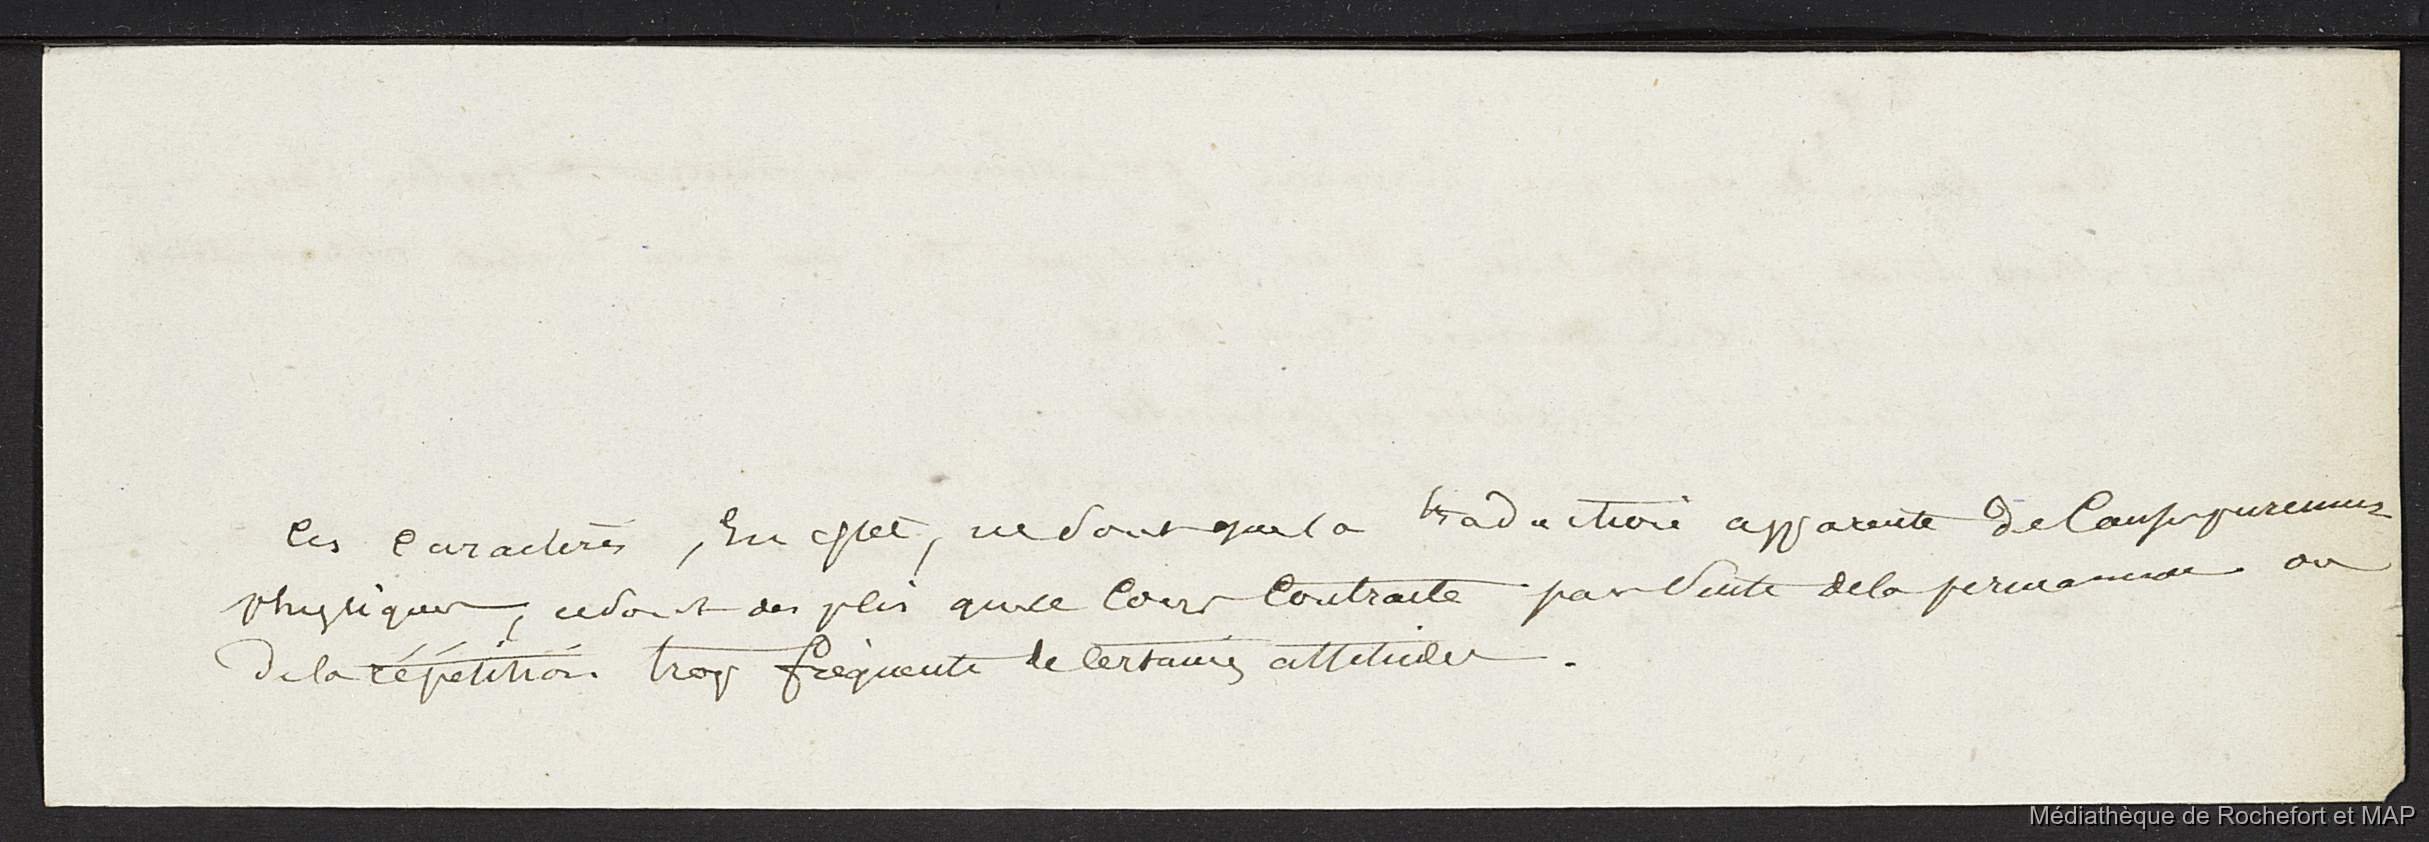 Ces caractères, En effet, ne sont que la traduction apparente de Causes purement
physiques, ce sont des plis que le Corps Contracte par suite de la permanence ou
De la répétition trop fréquente de Certaines attitudes.
Médiathèque de Rochefort et MAP